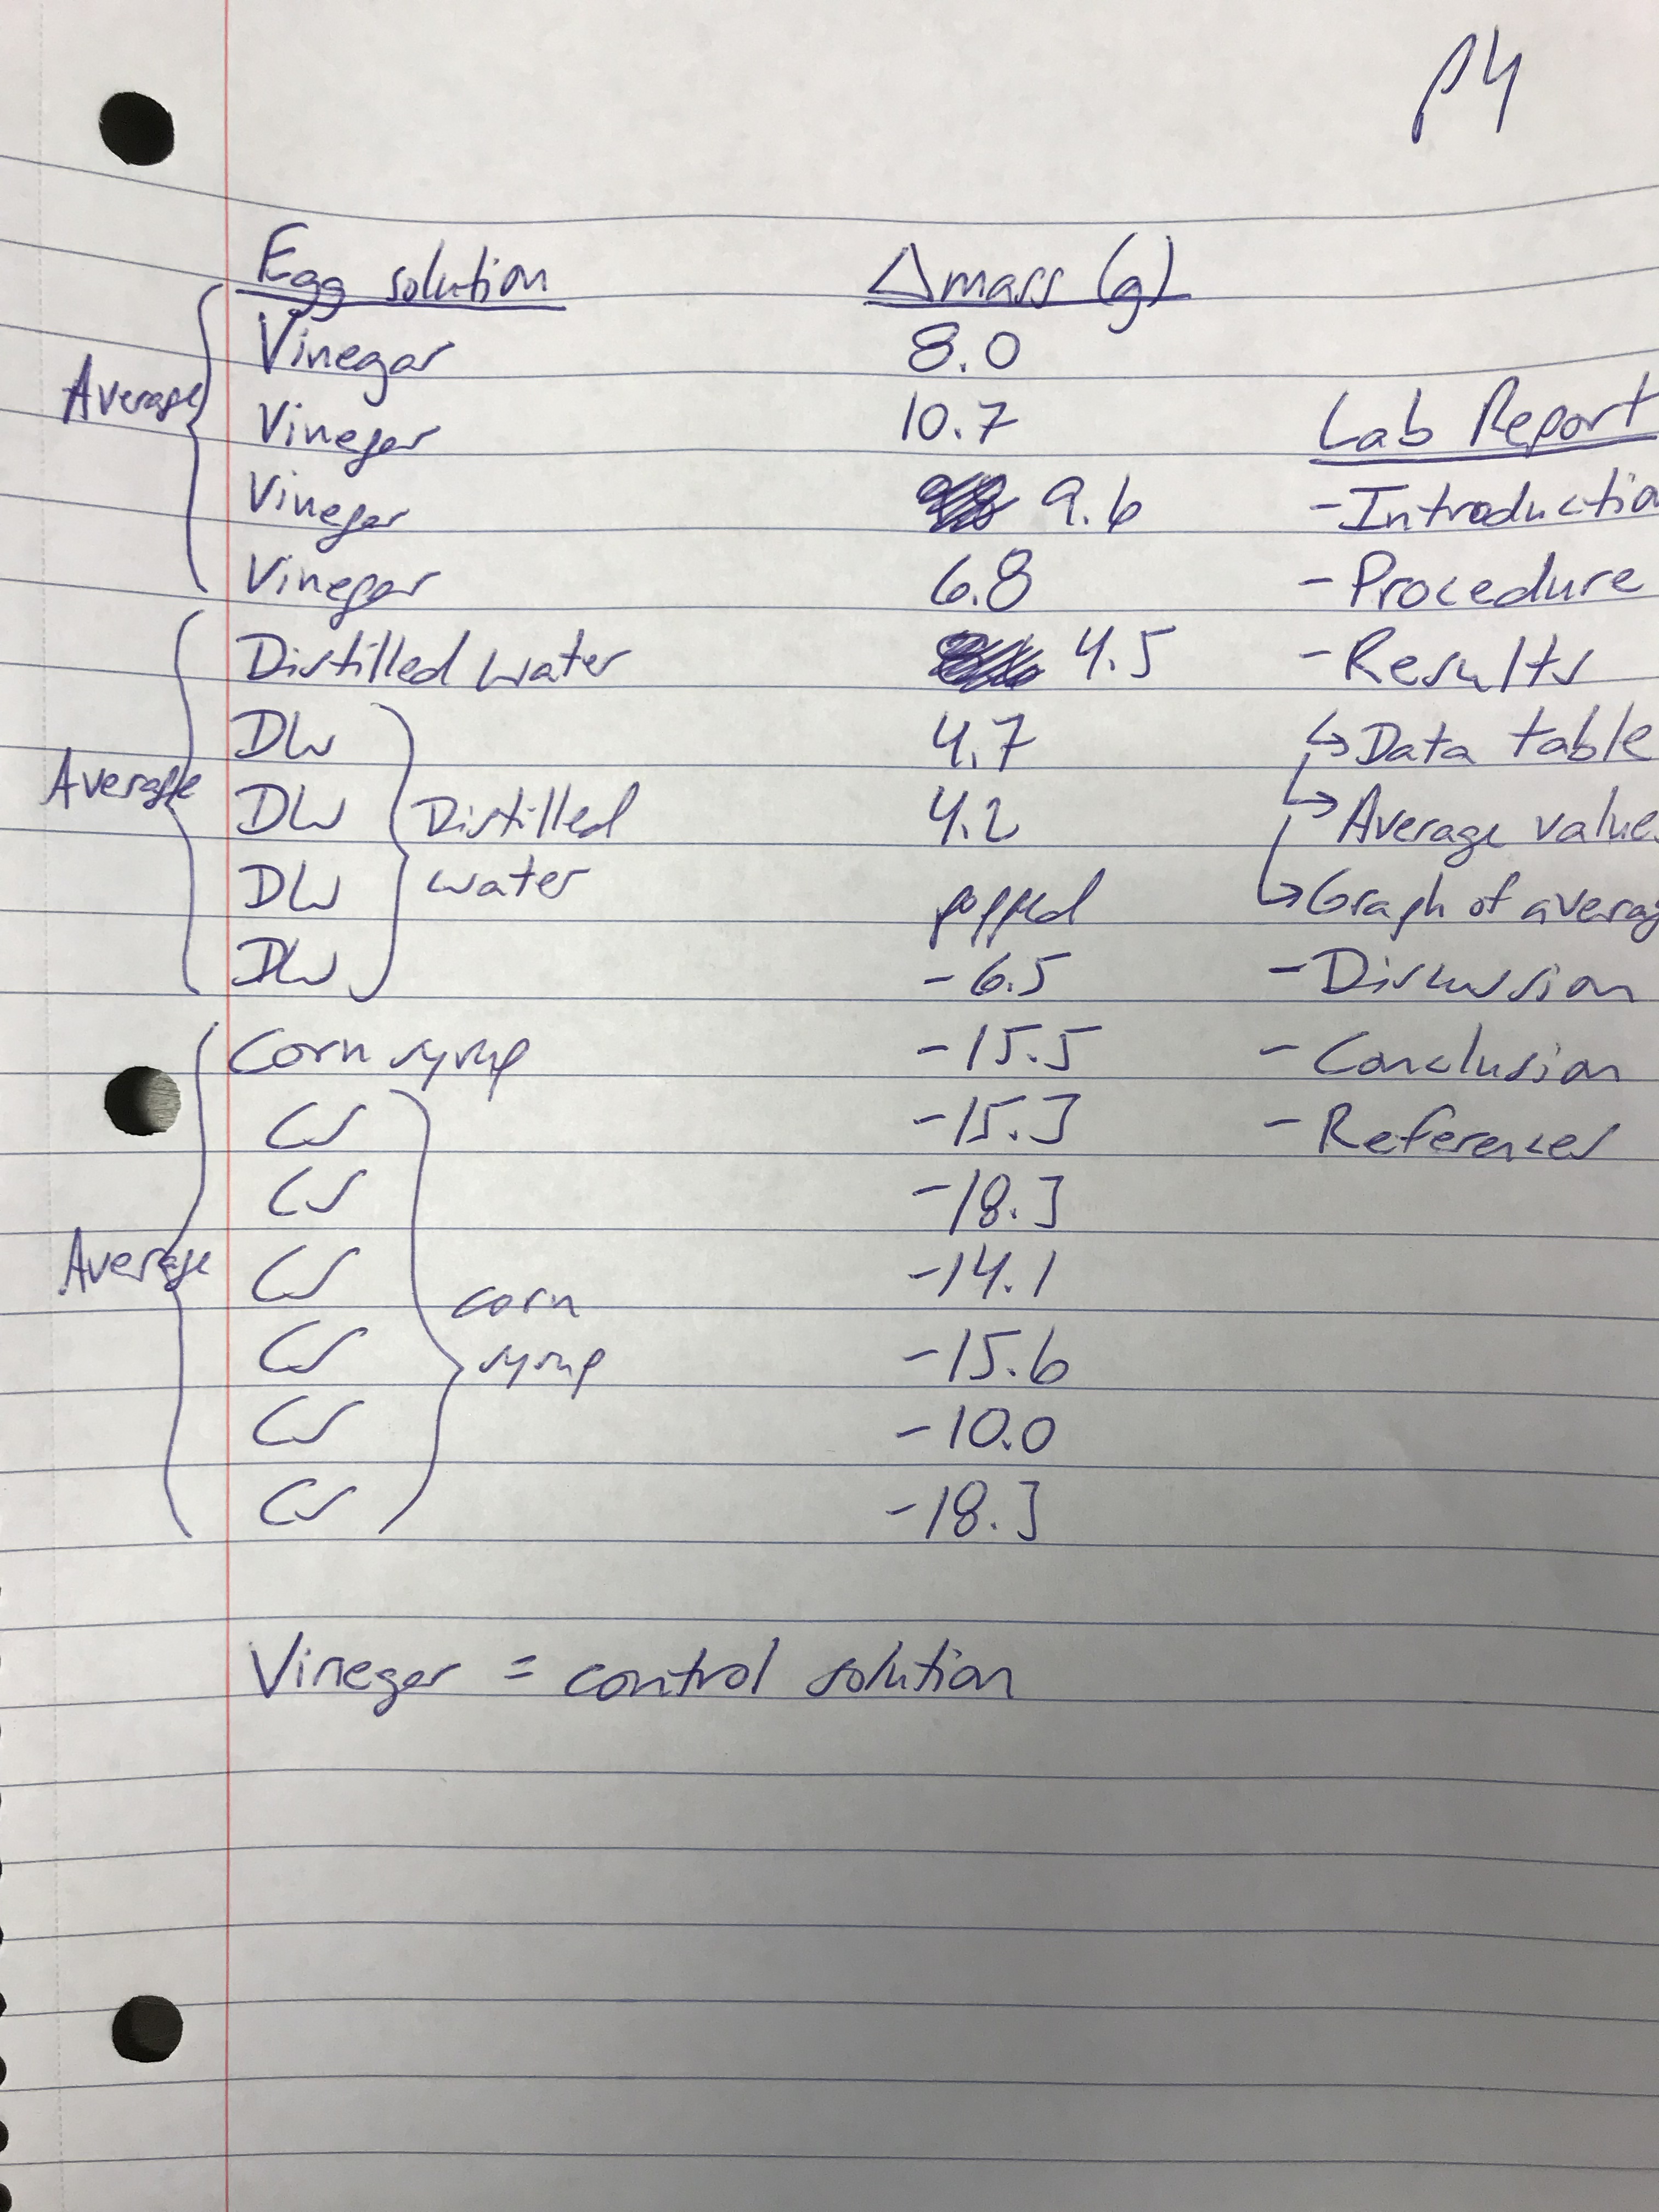 p4
Egg solution Δmass (g)
Average
Vinegar 8.0
Vinegar 10.7
Vinegar 9.6
Vinegar 6.8
Average
Distilled water 4.5
DW 4.7
DW 4.2
DW popped
DW -6.5
Distilled
water
Average
Corn syrup -15.5
CS -15.3
CS -18.3
CS -14.1
CS -15.6
CS -10.0
CS -18.3
corn
syrup
Lab Report
- Introductio
- Procedure
- Results
↳ Data table
↳ Average value
↳ Graph of averag
- Discussion
- Conclusion
- References
Vinegar = control solution